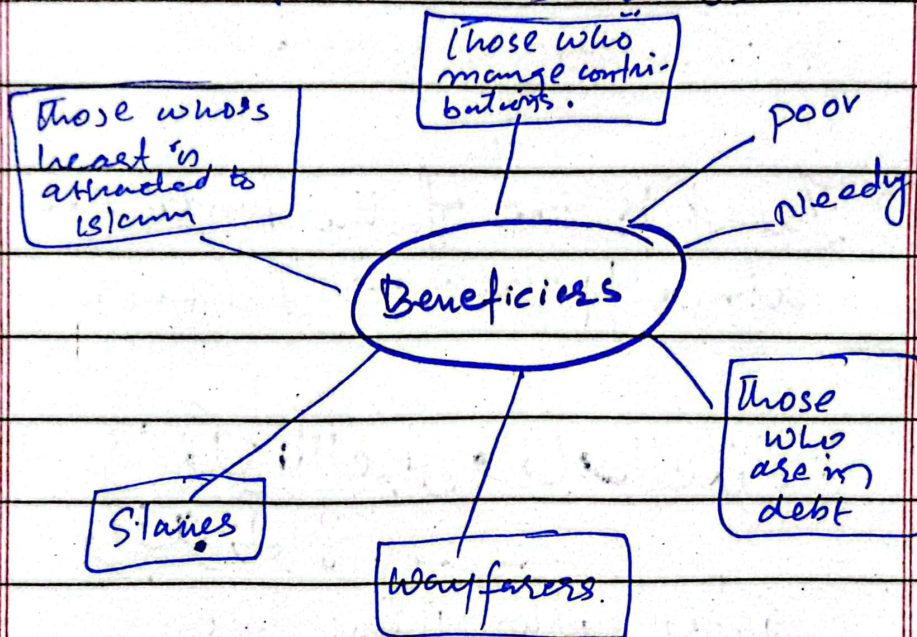 Those who
mange contri-
butions.
Those who's
heart is
attracted to
Islamm
Poor
Needy
Beneficiers
Those
who
are in
debt
Slaves
Wayfarers.